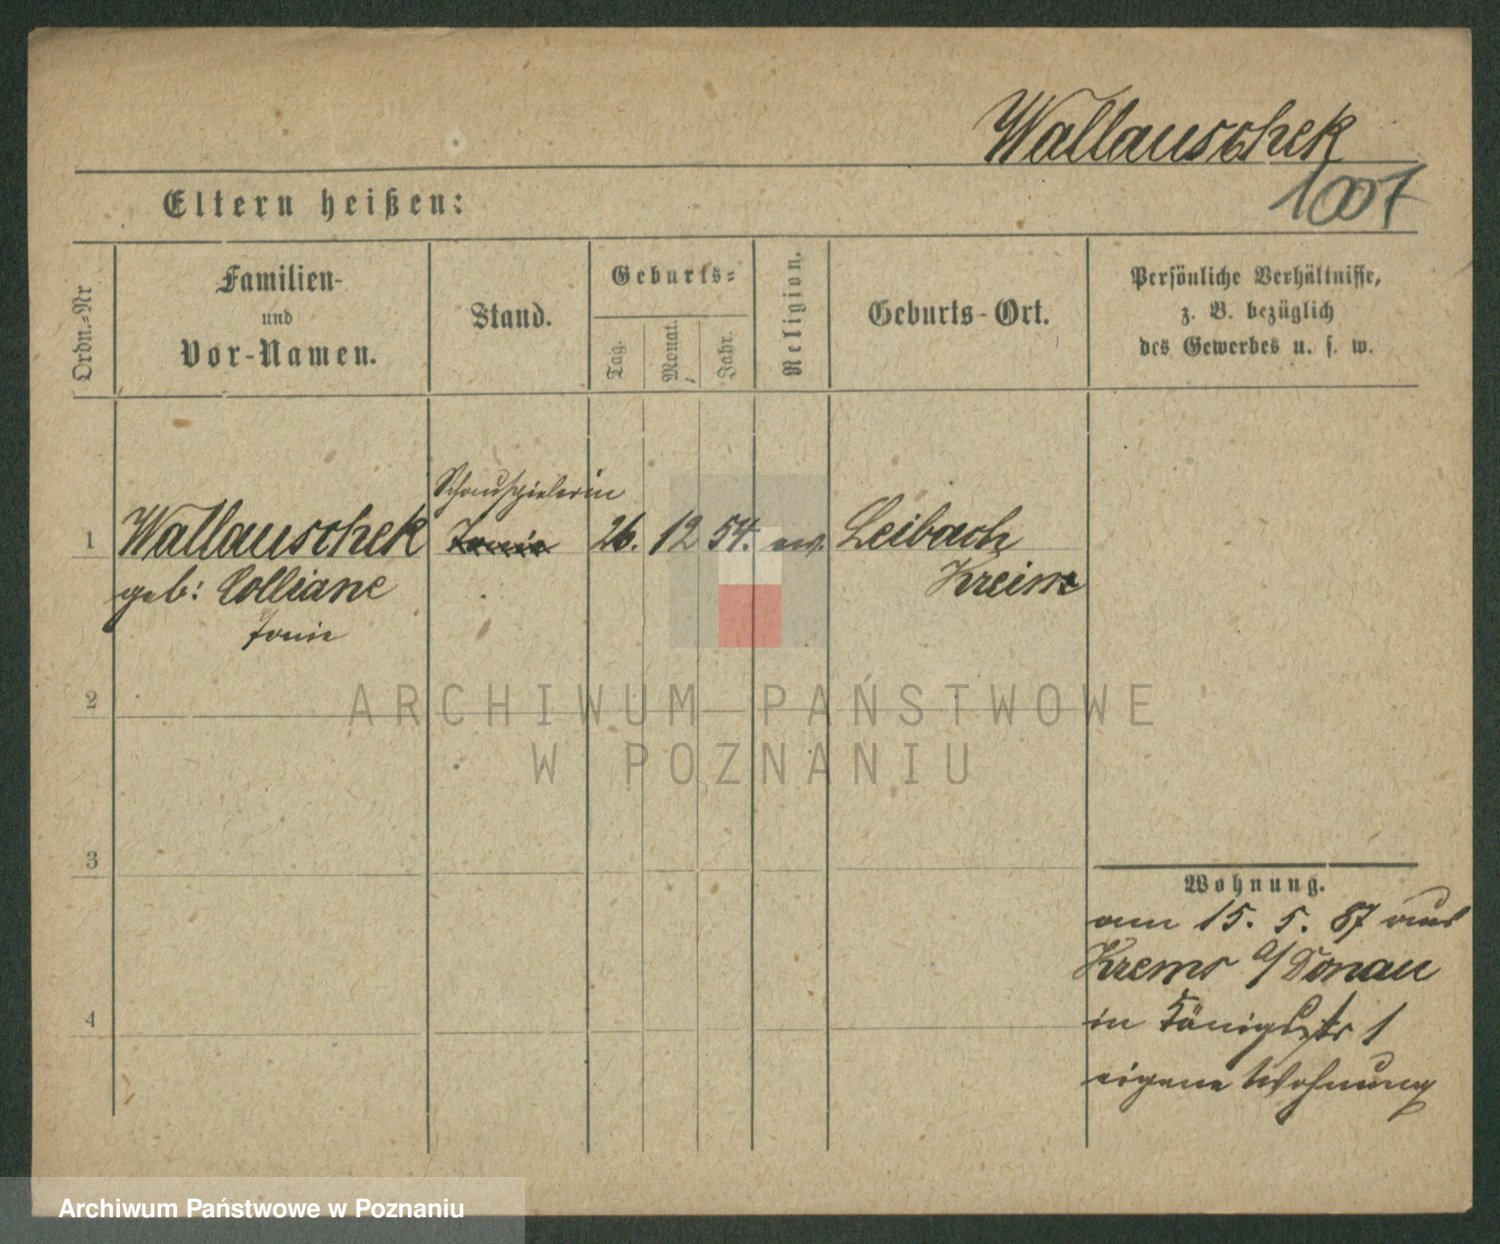 Wallauschek
1007
Eltern heißen:
Ordn.=Nr
Familien-
und
Vor-Namen.
Stand.
Geburts=
Tag.
Monat.
Jahr.
Religion.
Geburts-Ort.
Persönliche Verhältnisse,
z. B. bezüglich
des Gewerbes u. s. w.
Schauspielerin
1 Wallauschek Tonie 26. 12 54. ev. Leibach
geb: Colliane Kreim
Tonie
2
ARCHIWUM PAŃSTWOWE
W POZNANIU
3
Wohnung.
am 15. 5. 87 aus
Krems a/Donau
in Königstr 1
4
eigene Wohnung
Archiwum Państwowe w Poznaniu